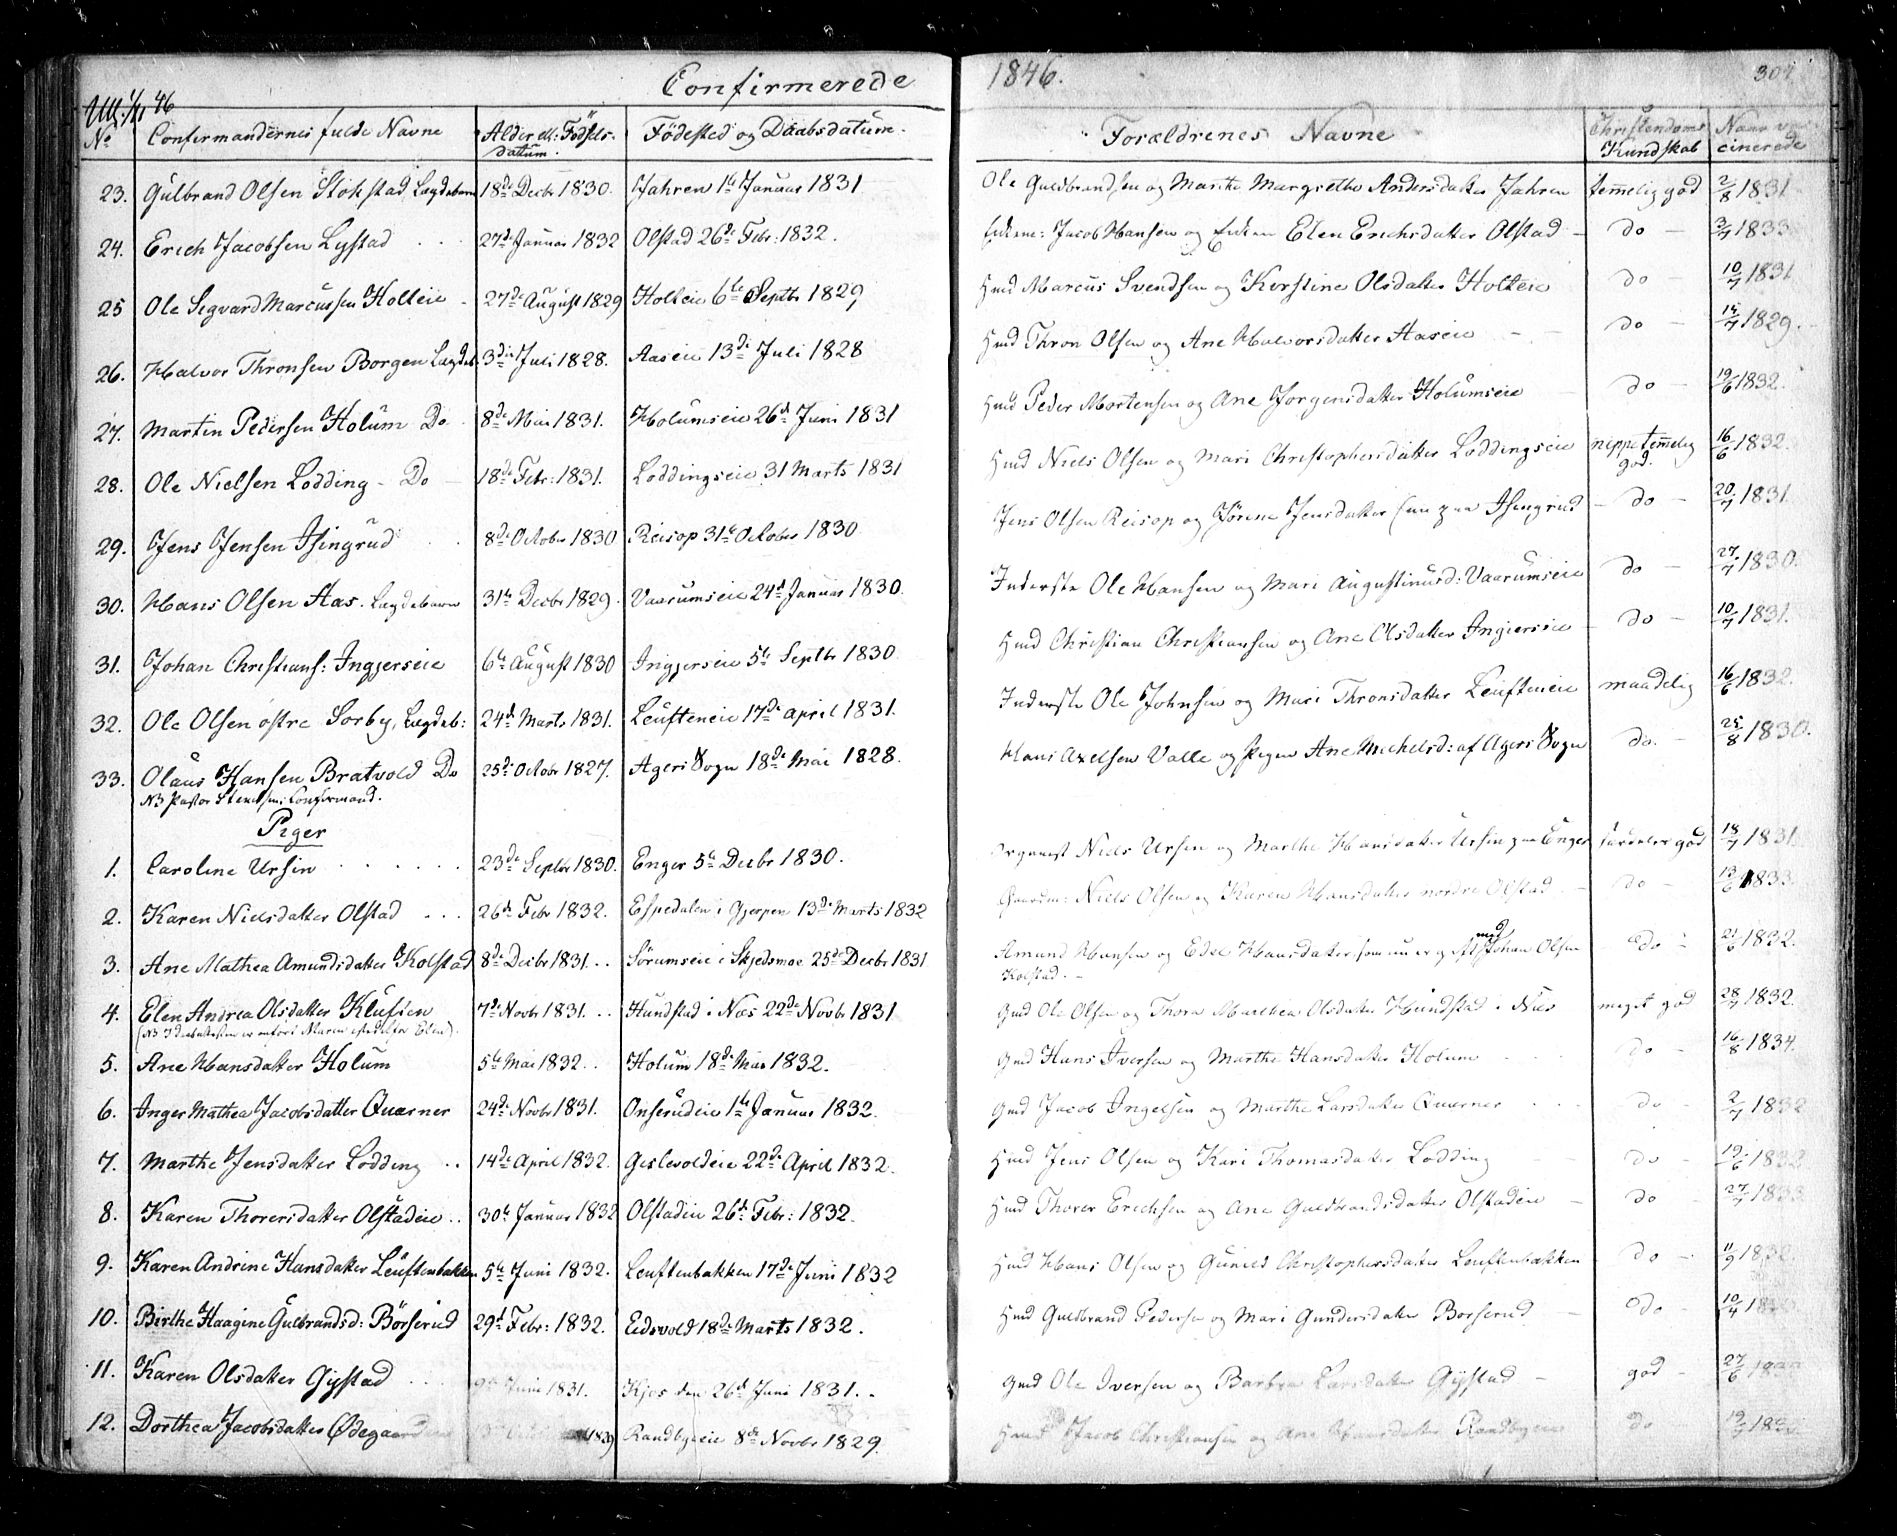 Confirmerede 1846. 307
Ull: 1/11 46
No Confirmandernes fulde Navne Alder ell: Födsels- Födested og Daabsdatum. Forældrenes Navne Christendoms Naar vac-
datum. Kundskab cinerede
23. Gulbrand Olsen Stokstad Lægdebarn 18de Decbr 1830. Jahren 1te Januar 1831 Ole Guldbrandsen og Marthe Margrethe Andersdatter Jahren temmelig god 2/8 1831
24. Erich Jacobsen Lystad 27de Januar 1832 Olstad 26de Febr: 1832. Jacob Hansen og Elen Erichsdatter Olstad do 3/7 1833
25 Ole Segvard Marcussen Holteie 27de August 1829 Holteie 6te Septbr 1829 Hmd Marcus Svendsen og Kirstine Olsdatter Holteie do 10/7 1831
26. Halvor Thronsen Borgen Lægdeb. 3die Juli 1828. Aaseie 13de Juli 1828 Hmd Thron Olsen og Ane Halvorsdatter Aaseie do 14/7 1829.
27. Martin Pedersen Holum Do 8de Mai 1831. Holumseie 26de Juni 1831 Hmd Peder Mortensen og Ane Jorgensdatter Holumseie do 19/6 1832.
28. Ole Nielsen Lodding - Do 18de Febr: 1831. Loddingseie 31 Marts 1831 Hmd Niels Olsen og Mari Christophersdatter Loddingseie neppe temmelig god. 16/6 1832.
29. Jens Jensen Isingrud 8de October 1830 Reisop 31te October 1830 Jens Olsen Reisop og Jörine Jensdatter nu paa Isingrud do 20/7 1831
30. Hans Olsen Aas. Lægdebarn 31te Decbr 1829. Vaarumseie 24de Januar 1830. Inderste Ole Hansen og Mari Augustinusd: Vaarumseie do 27/7 1830.
31. Johan Christians: Ingjerseie 6te August 1830 Ingjerseie 5te Septbr 1830. Hmd Christian Christiansen og Ane Olsdatter Ingierseie do 10/7 1831.
32. Ole Olsen östre Sorby, Lægdeb: 24de Marts 1831. Leufteneie 17de April 1831. Inderste Ole Johnsen og Mari Thronsdatter Leufteneie maadelig 16/6 1832.
33. Olaus Hansen Bratvold Do 25de Octobr 1827. Agers Sogn 18de Mai 1828. Hans Axelsen Valle og Pigen Ane Michelsd: af Agers Sogn do. 25/8 1830.
NB Pastor Stenersens Confirmand.
Piger
1. Caroline Ursin 23de Septbr 1830. Enger 5te Decbr 1830. Organist Niels Ursin og Marthe Hansdatter Ursin paa Enger særdeles god 18/7 1831
2. Karen Nielsdatter Olstad 26de Febr 1832. Espedalen i Gjerpen 13de Marts 1832 Gaardm: Niels Olsen og Karen Hansdatter nordre Olstad do 13/6 1833
3. Ane Mathea Amundsdatter Kolstad 8de Decbr 1831. Sörumseie i Skjedsmoe 25de Decbr 1831 Amund Hansen og Edel Hansdatter som nu er gift med Johan Olsen do 21/6 1832.
Kolstad.
4. Elen Andrea Olsdatter Klufsen 7de Novbr 1831. Hundstad i Næs 22de Novbr 1831 Gmd Ole Olsen og Thora Marthea Olsdatter Hundstad i Næs meget god 28/7 1832.
(NB I daabsattesten er anfört Maren istedetfor Elen).
5. Ane Hansdatter Holum 5te Mai 1832. Holum 18de Mai 1832. Gmd Hans Iversen og Marthe Hansdatter Holum do 16/8 1834.
6. Inger Mathea Jacobsdatter Quarner 24de Novbr 1831. Onserudeie 1te Januar 1832. Gmd Jacob Ingelsen og Marthe Larsdatter Quarner do 2/7 1832
7. Marthe Jensdatter Lodding 14de April 1832. Geslevoldeie 22de April 1832. Hmd Jens Olsen og Kari Thomasdatter Lodding do 19/6 1832
8. Karen Thorersdatter Olstadeie 30te Januar 1832 Olstadeie 26de Febr: 1832. Hmd Thorer Erichsen og Ane Guldbrandsdatter Olstadeie do 27/7 1833
9. Karen Andrine Hansdatter Leuftenbakken 5te Juni 1832. Leuftenbakken 17de Juni 1832 Hmd Hans Olsen og Gunild Christophersdatter Leuftenbakken do 11/9 1832.
10. Birthe Haagine Gulbrandsd: Börserud 29de Febr: 1832. Eidsvold 18de Marts 1832. Hmd Guldbrand Pedersen og Mari Gundersdatter Borserud do 10/4
11. Karen Olsdatter Gystad 9de Juni 1831. Kjos den 26de Juni 1831. Gmd Ole Iversen og Barbra Larsdatter Gystad god 27/6
12. Dorthea Jacobsdatter Ødegaarden 1829 Randbyeie 8de Novbr 1829. Hmd Jacob Christiansen og Ane Hansdatter Randbyeie do 19/7